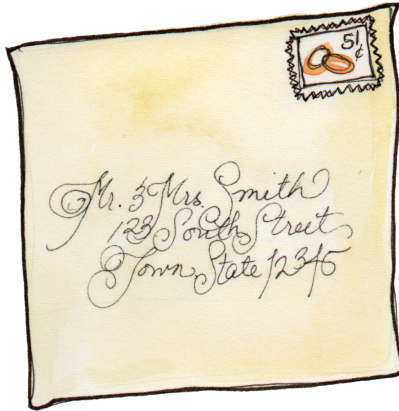 51¢
Mr. & Mrs. Smith
123 South Street
Town, State 12345